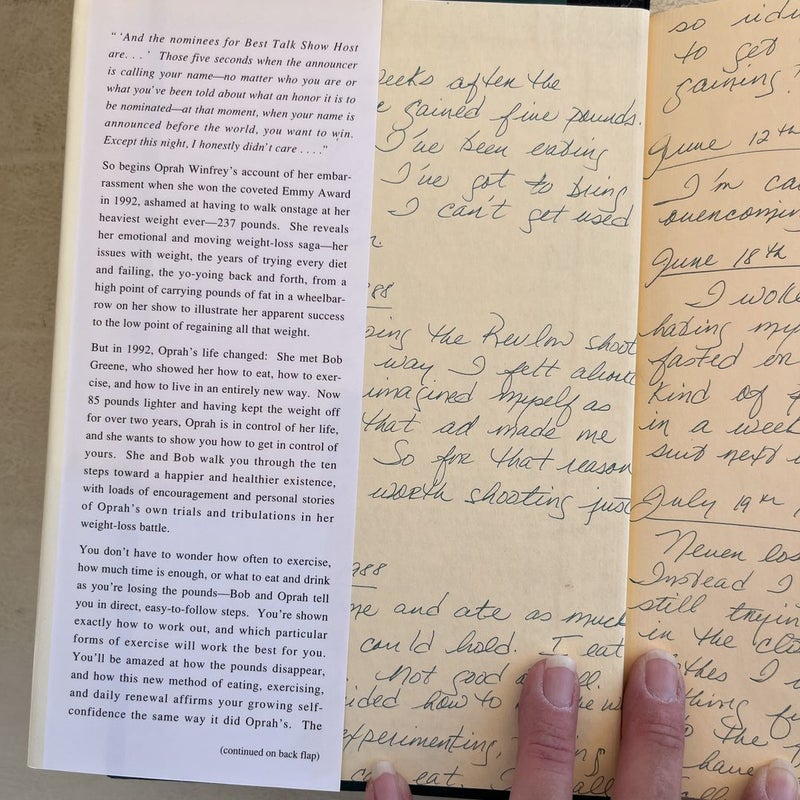 “ ‘And the nominees for Best Talk Show Host
are. . . ’ Those five seconds when the announcer
is calling your name—no matter who you are or
what you’ve been told about what an honor it is to
be nominated—at that moment, when your name is
announced before the world, you want to win.
Except this night, I honestly didn’t care . . . .”
So begins Oprah Winfrey’s account of her embar-
rassment when she won the coveted Emmy Award
in 1992, ashamed at having to walk onstage at her
heaviest weight ever—237 pounds. She reveals
her emotional and moving weight-loss saga—her
issues with weight, the years of trying every diet
and failing, the yo-yoing back and forth, from a
high point of carrying pounds of fat in a wheelbar-
row on her show to illustrate her apparent success
to the low point of regaining all that weight.
But in 1992, Oprah’s life changed: She met Bob
Greene, who showed her how to eat, how to exer-
cise, and how to live in an entirely new way. Now
85 pounds lighter and having kept the weight off
for over two years, Oprah is in control of her life,
and she wants to show you how to get in control of
yours. She and Bob walk you through the ten
steps toward a happier and healthier existence,
with loads of encouragement and personal stories
of Oprah’s own trials and tribulations in her
weight-loss battle.
You don’t have to wonder how often to exercise,
how much time is enough, or what to eat and drink
as you’re losing the pounds—Bob and Oprah tell
you in direct, easy-to-follow steps. You’re shown
exactly how to work out, and which particular
forms of exercise will work the best for you.
You’ll be amazed at how the pounds disappear,
and how this new method of eating, exercising,
and daily renewal affirms your growing self-
confidence the same way it did Oprah’s. The
(continued on back flap)
eeks after the
gained five pounds.
I've been eating
I've got to bring
I can't get used
88
the Revlon shoot
way I felt about
imagined myself as
that ad made me
So for that reason
worth shooting just
988
me and ate as much
could hold. I eat
Not good
how to
experimenting,
eat.
so
to get
gaining?
June 12th
I'm
overcoming
June 18th
I woke
hating my
fasted on
kind of
in a week
suit next
July 19th
Never los
Instead I
still tryin
in the clo
I
thing
the
have